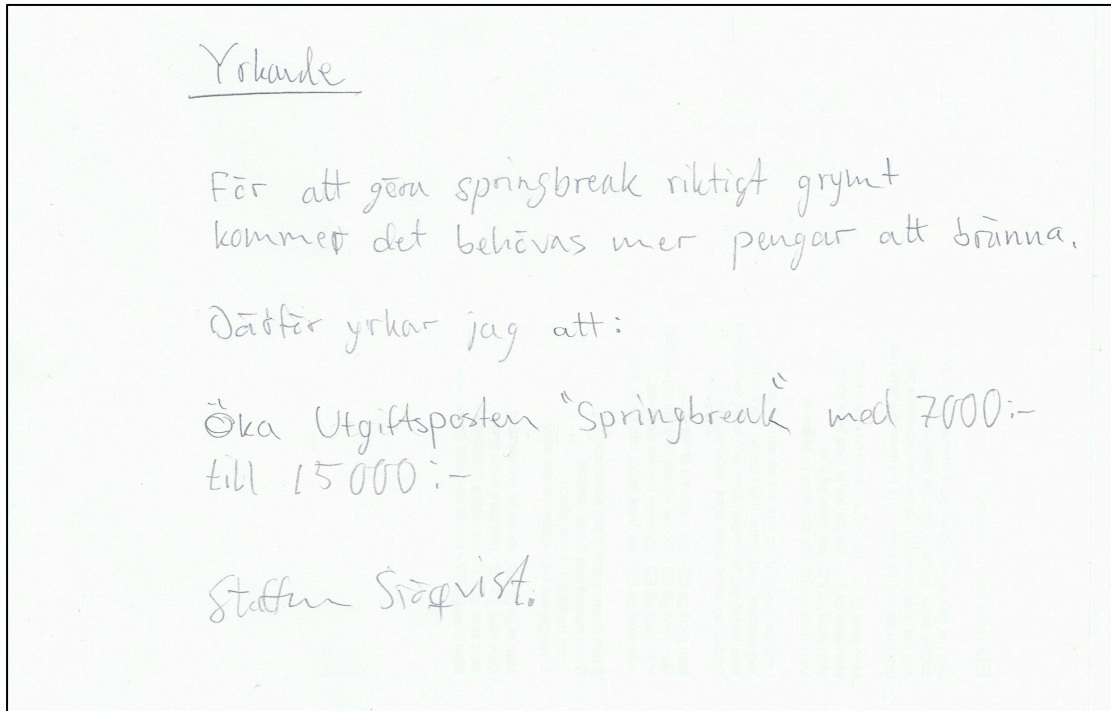 Yrkande
För att göra springbreak riktigt grymt
kommer det behövas mer pengar att bränna.
Därför yrkar jag att:
Öka Utgiftsposten "Springbreak" med 7000:-
till 15000:-
Staffan Sjöqvist.